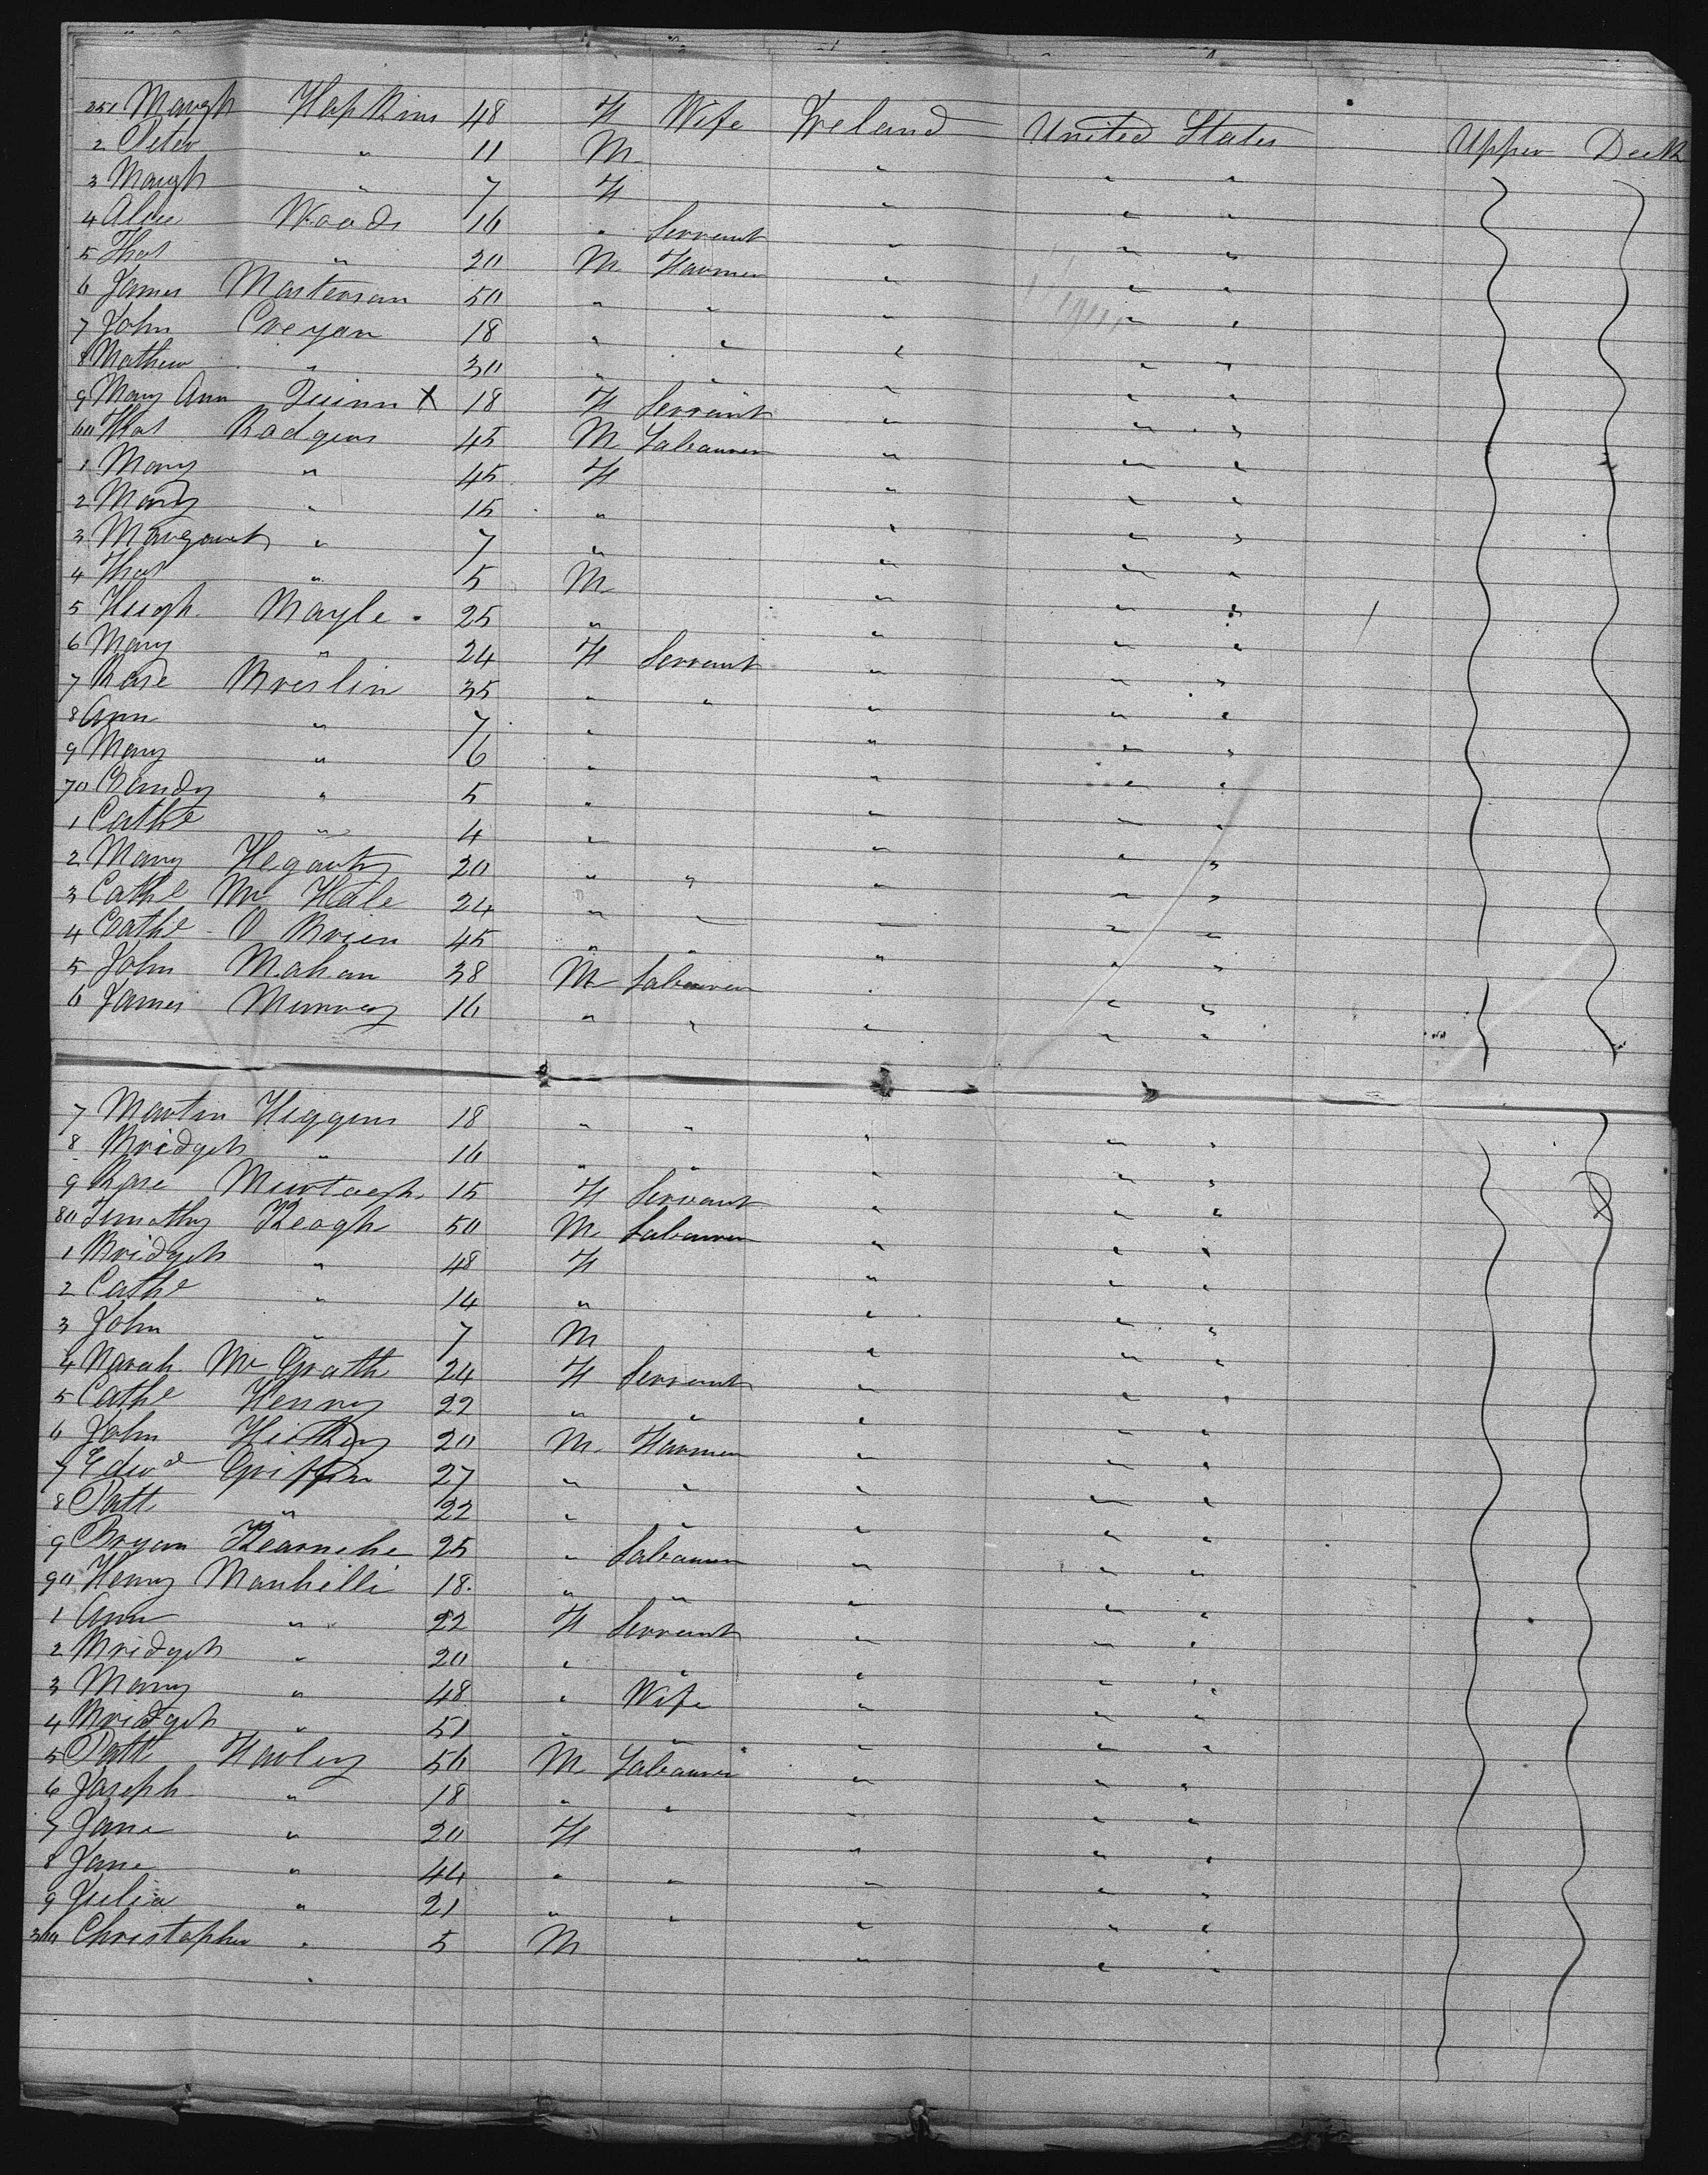 251 Margt Hopkins 48 F Wife Ireland United States Upper Deck
2 Peter " 11 M " " "
3 Margt " 7 F " " "
4 Alice Woods 16 " Servant " " "
5 Thos " 20 M Farmer " " "
6 James Masterson 50 " " " " "
7 John Creyan 18 " " " " "
8 Mathew " 30 " " " " "
9 Mary Ann Quinn X 18 F Servant " " "
60 Thos Rodgers 45 M Labourer " " "
1 Mary " 45 F " " "
2 Mary " 15 " " " "
3 Margaret " 7 " " " "
4 Thos " 5 M " " "
5 Hugh Boyle 25 " " " "
6 Mary " 24 F Servant " " "
7 Rose Breslin 35 " " " " "
8 Ann " 7 " " " "
9 Mary " 6 " " " "
70 " 5 " " " "
1 Cathe " 4 " " " "
2 Mary Hegarty 20 " " " " "
3 Cathe Mc Hale 24 " " " " "
4 Cathe O Brien 45 " " " " "
5 John Mahan 38 M Labourer " " "
6 James Murray 16 " " " " "
7 Martin Higgins 18 " " " " "
8 Bridget " 16 " " " " "
9 Rose Murtaegh 15 F Servant " " "
80 Timothy Keogh 50 M Labourer " " "
1 Bridget " 48 F " " "
2 Cathe " 14 " " " "
3 John " 7 M " " "
4 Norah Mc Grath 24 F Servant " " "
5 Cathe Henry 22 " " " " "
6 John 20 M Farmer " " "
7 Edwd Griffin 27 " " " " "
8 Patt " 22 " " " " "
9 Bryan 25 " Labourer " " "
90 Henry 18 " " " " "
1 Ann " 22 F Servant " " "
2 Bridget " 20 " " " " "
3 Mary " 48 " Wife " " "
4 Bridget " 51 " " " " "
5 Patt Farley 50 M Labourer " " "
6 Joseph " 18 " " " " "
7 Jane " 20 F " " "
8 Jane " 44 " " " " "
9 Julia " 21 " " " " "
300 Christopher " 5 M " " "